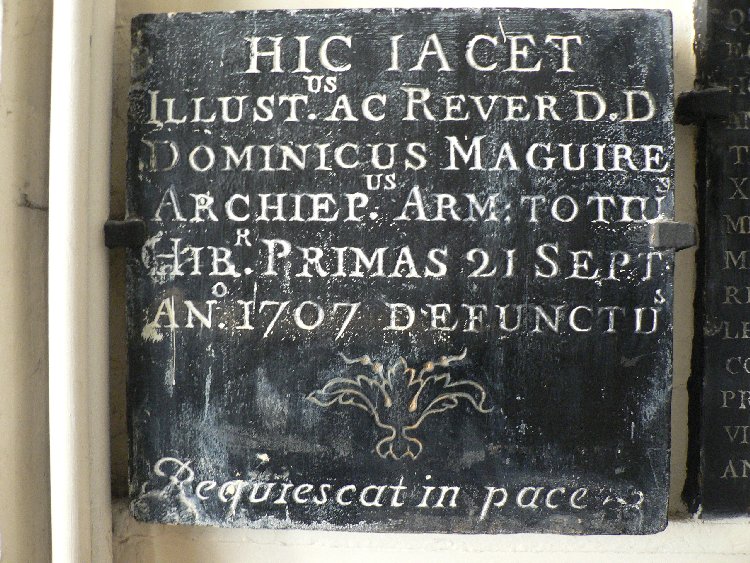 HIC IACET
ILLUST.US AC REVER D.D
DOMINICUS MAGUIRE
ARCHIEP.US ARM: TOTIUS
HIBR. PRIMAS 21 SEPT.
ANO. 1707 DEFUNCTUS
Requiescat in pace